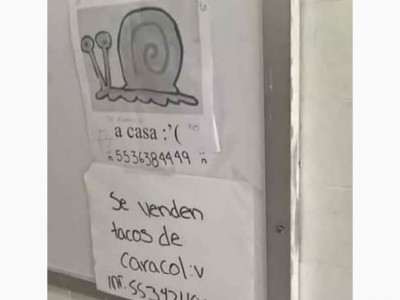 a casa :'(
5536384499
Se venden
tacos de
caracol :v